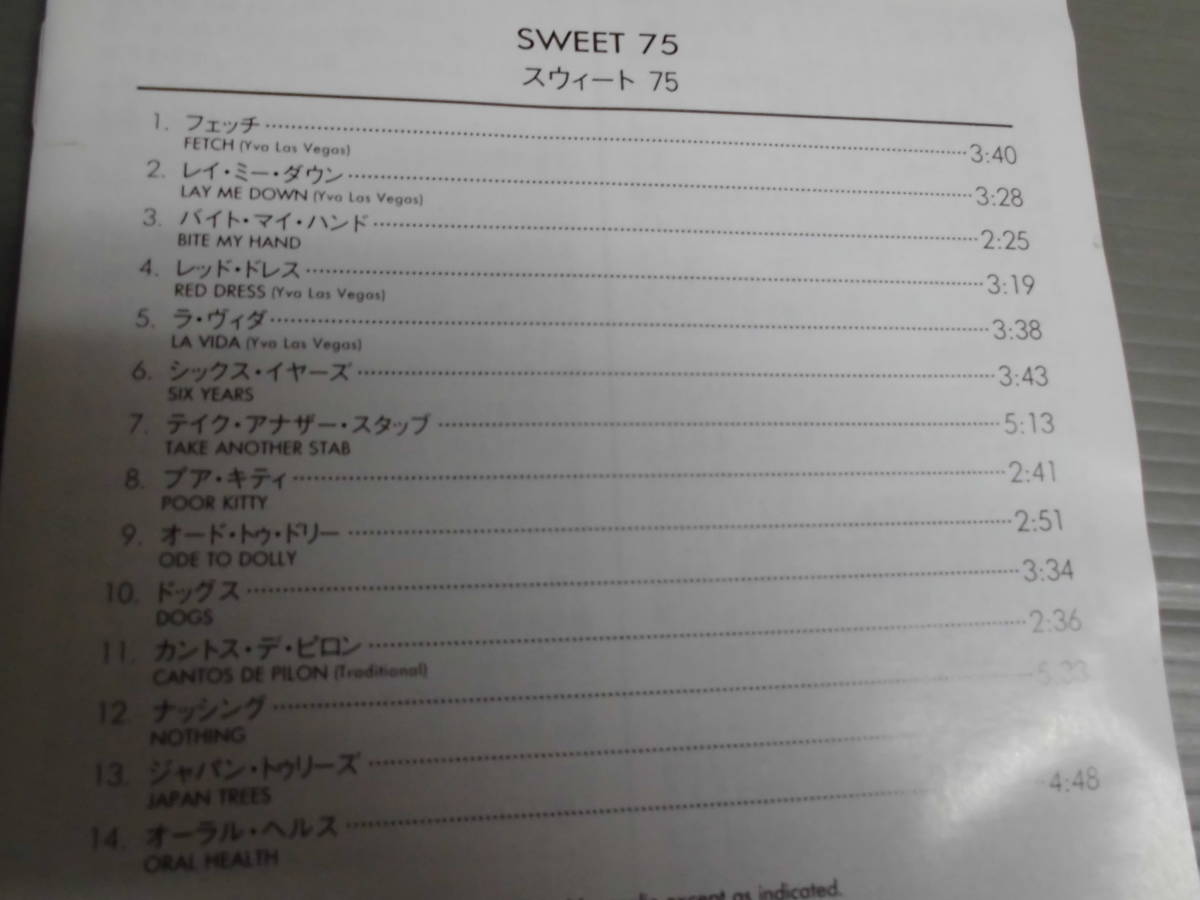 SWEET 75
スウィート 75
1. フェッチ 3:40
FETCH (Yva Las Vegas)
2. レイ・ミー・ダウン 3:28
LAY ME DOWN (Yva Las Vegas)
3. バイト・マイ・ハンド 2:25
BITE MY HAND
4. レッド・ドレス 3:19
RED DRESS (Yva Las Vegas)
5. ラ・ヴィダ 3:38
LA VIDA (Yva Las Vegas)
6. シックス・イヤーズ 3:43
SIX YEARS
7. テイク・アナザー・スタッブ 5:13
TAKE ANOTHER STAB
8. プア・キティ 2:41
POOR KITTY
9. オード・トゥ・ドリー 2:51
ODE TO DOLLY
10. ドッグス 3:34
DOGS
11. カントス・デ・ピロン 2:36
CANTOS DE PILON (Traditional)
12. ナッシング
NOTHING
13. ジャパン・トゥリーズ
JAPAN TREES
14. オーラル・ヘルス 4:48
ORAL HEALTH
except as indicated.